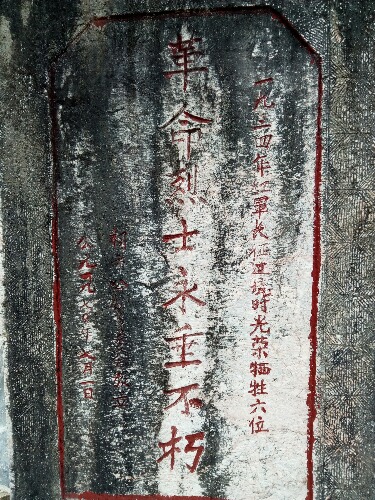 一九三四年红军长征过境时光荣牺牲六位
革命烈士永垂不朽
公元 年七月一日